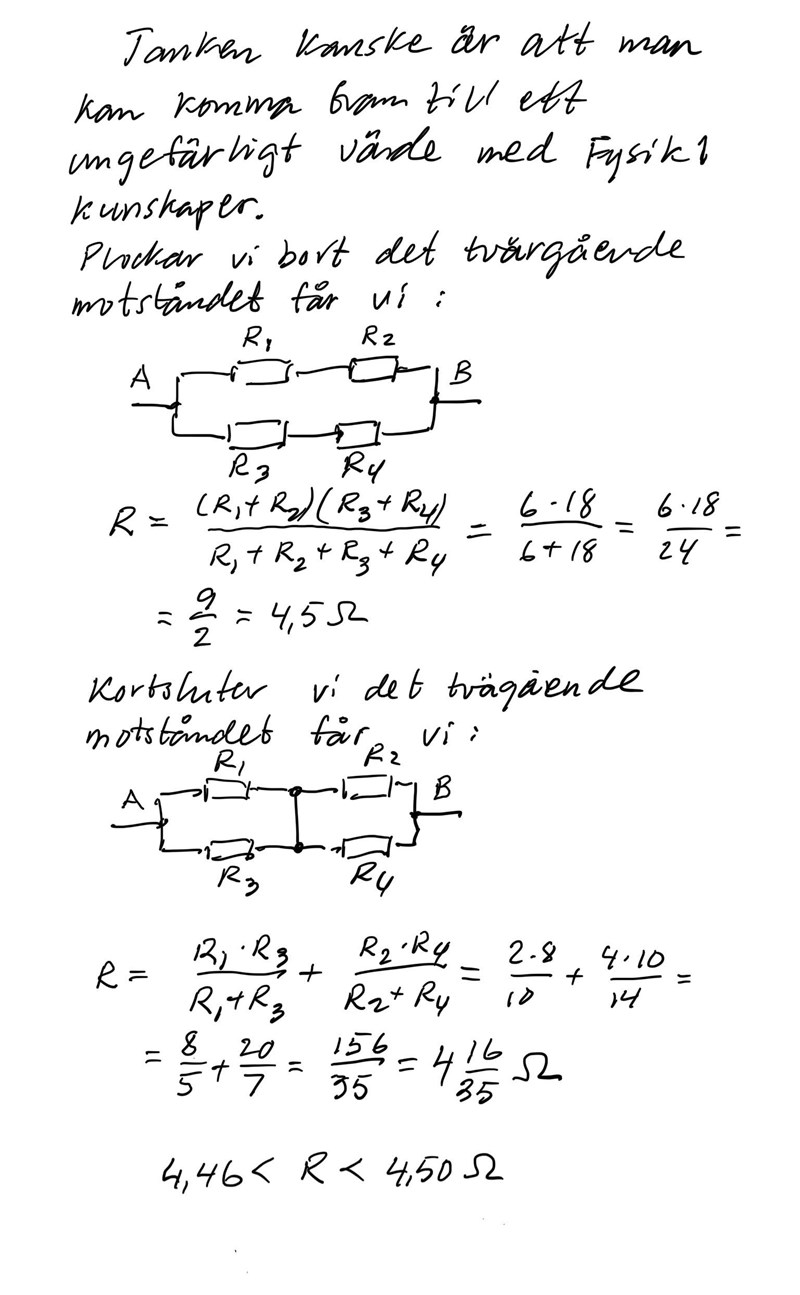 Tanken kanske är att man
kan komma fram till ett
ungefärligt värde med Fysik 1
kunskaper.
Plockar vi bort det tvärgående
motståndet får vi :
R₁ R₂
A B
R₃ R₄
R = (R₁ + R₂)(R₃ + R₄) / (R₁ + R₂ + R₃ + R₄) = 6 · 18 / (6 + 18) = 6 · 18 / 24 =
= 9/2 = 4,5 Ω
Kortsluter vi det tvägående
motståndet får vi :
R₁ R₂
A B
R₃ R₄
R = R₁ · R₃ / (R₁ + R₃) + R₂ · R₄ / (R₂ + R₄) = 2 · 8 / 10 + 4 · 10 / 14 =
= 8/5 + 20/7 = 156/35 = 4 16/35 Ω
4,46 < R < 4,50 Ω